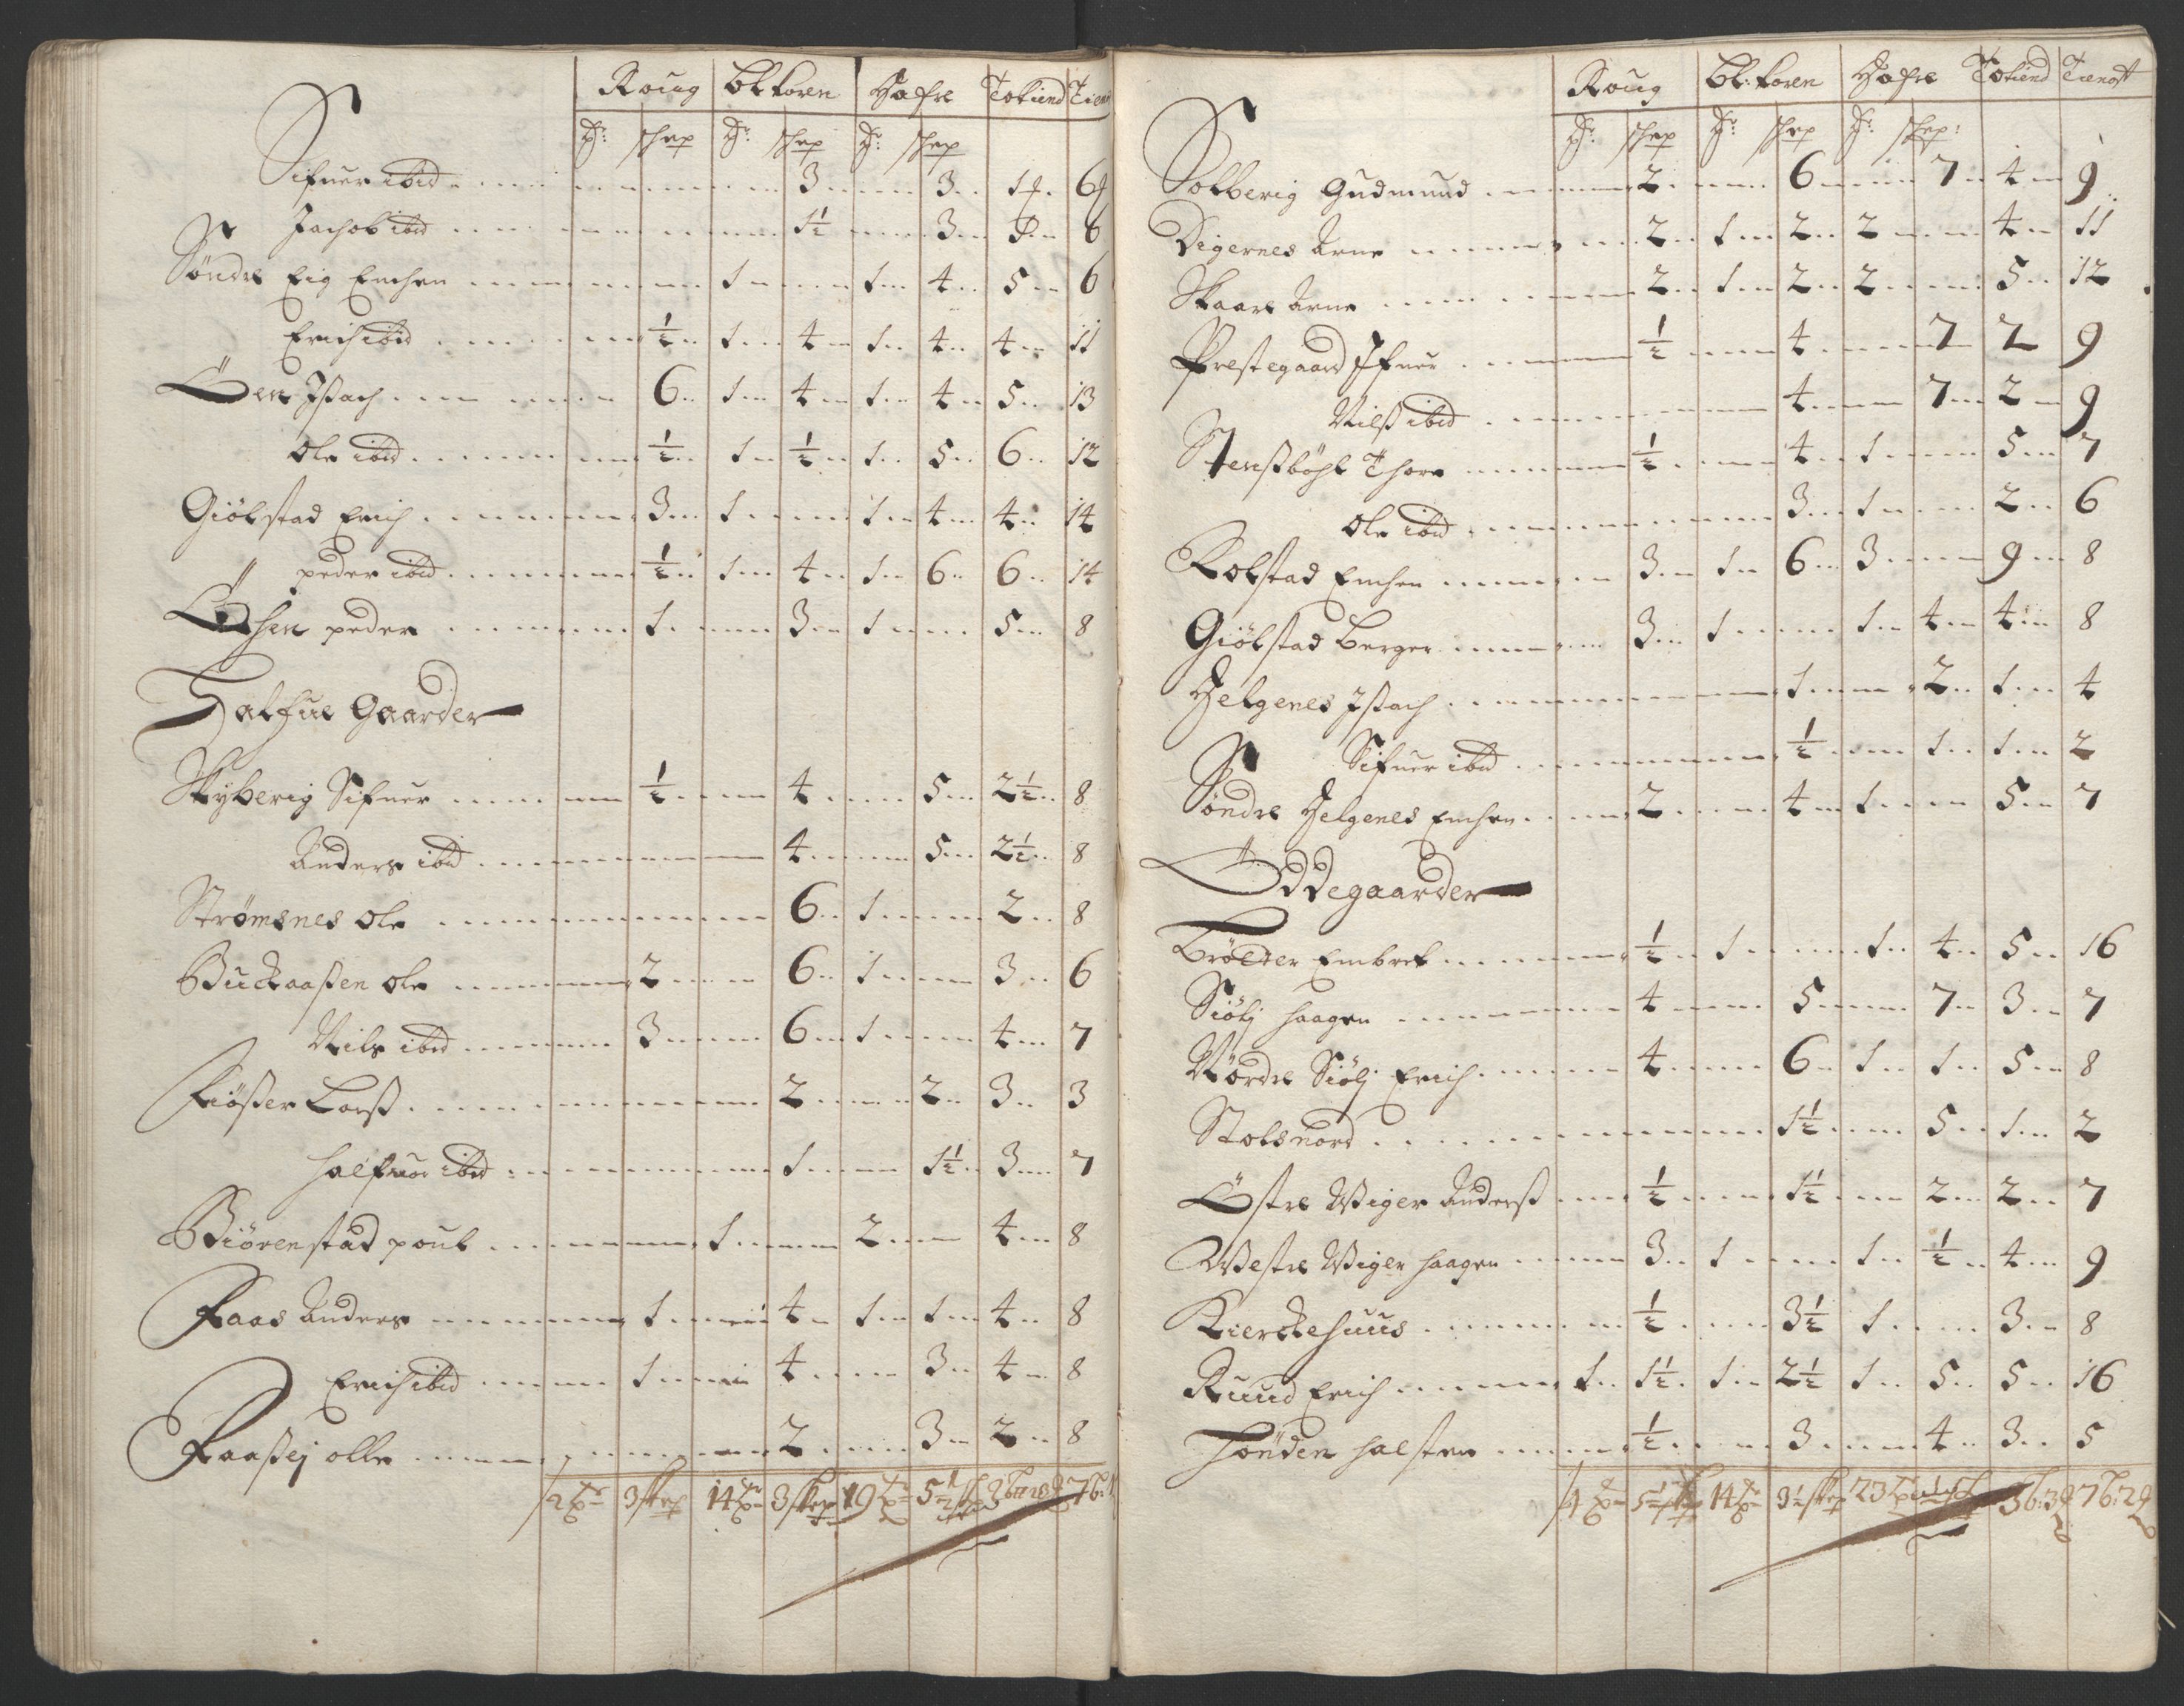 Roug Bl koren Hafre Totiend Tien
Tr: skep Tr: skep Tr: skep
Sifuer ibid 3 3 1 6
Jachob ibid 1½ 3 6
Söndre Eig Enchen 1 1 4 5 6
Erich ibid ½ 1 4 1 4 4 11
Öen Jsach 6 1 4 1 4 5 13
Ole ibid ½ 1 ½ 1 5 6 12
Giölstad Erich 3 1 1 4 4 14
peder ibid ½ 1 4 1 6 6 14
Öhen peder 1 3 1 5 8
Halfue Gaarder
Skyberig Sifuer ½ 4 5 2½ 8
Anders ibid 4 5 2½ 8
Strømsnes Ole 6 1 2 8
Buckaaßen Ole 2 6 1 3 6
Nils ibid 3 6 1 4 7
Kiößer Larß 2 2 3 3
halfuor ibid 1 1½ 3 7
Biörenstad poul 1 2 4 8
Faas Anders 1 4 1 1 4 8
Erich ibid 1 4 3 4 8
Faaßej olle 2 3 2 8
12 Tr 3 skep 14 Tr 3 skep 19 Tr 5½
Roug Bl: koren Hafre Totiend Tienest
Tr: skep Tr: skep Tr: skep:
Solberig Gudmund 2 6 7 4 9
Digernes Arne 2 1 2 2 4 11
Skaare Arne 2 1 2 2 5 12
Prestegaard Jfuer ½ 4 7 2 9
Nilß ibid 4 7 2 9
Stenßböhl Thore ½ 4 1 5 7
Ole ibid 3 1 2 6
Kolstad Enchen 3 1 6 3 9 8
Giölstad Berger 3 1 1 4 4 8
Helgenes Jsach 1 2 1 4
Sifuer ibid ½ 1 1 2
Söndre Helgenes Enchen 2 4 1 5 7
Öddegaarder
Trölder Embret ½ 1 1 4 5 16
Siölj haagen 4 5 7 3 7
Nördre Siölj Erich 4 6 1 1 5 8
Stolsnord 1½ 5 1 2
Östre Wiger Anderß ½ 1½ 2 2 7
Westre Wiger haagen 3 1 1 ½ 4 9
Kierckehuus ½ 3½ 1 3 8
Ruud Erich 1 1½ 1 2½ 1 5 5 16
Thönden halsten ½ 3 4 3 5
14 Tr 3½ skep 23 Tr